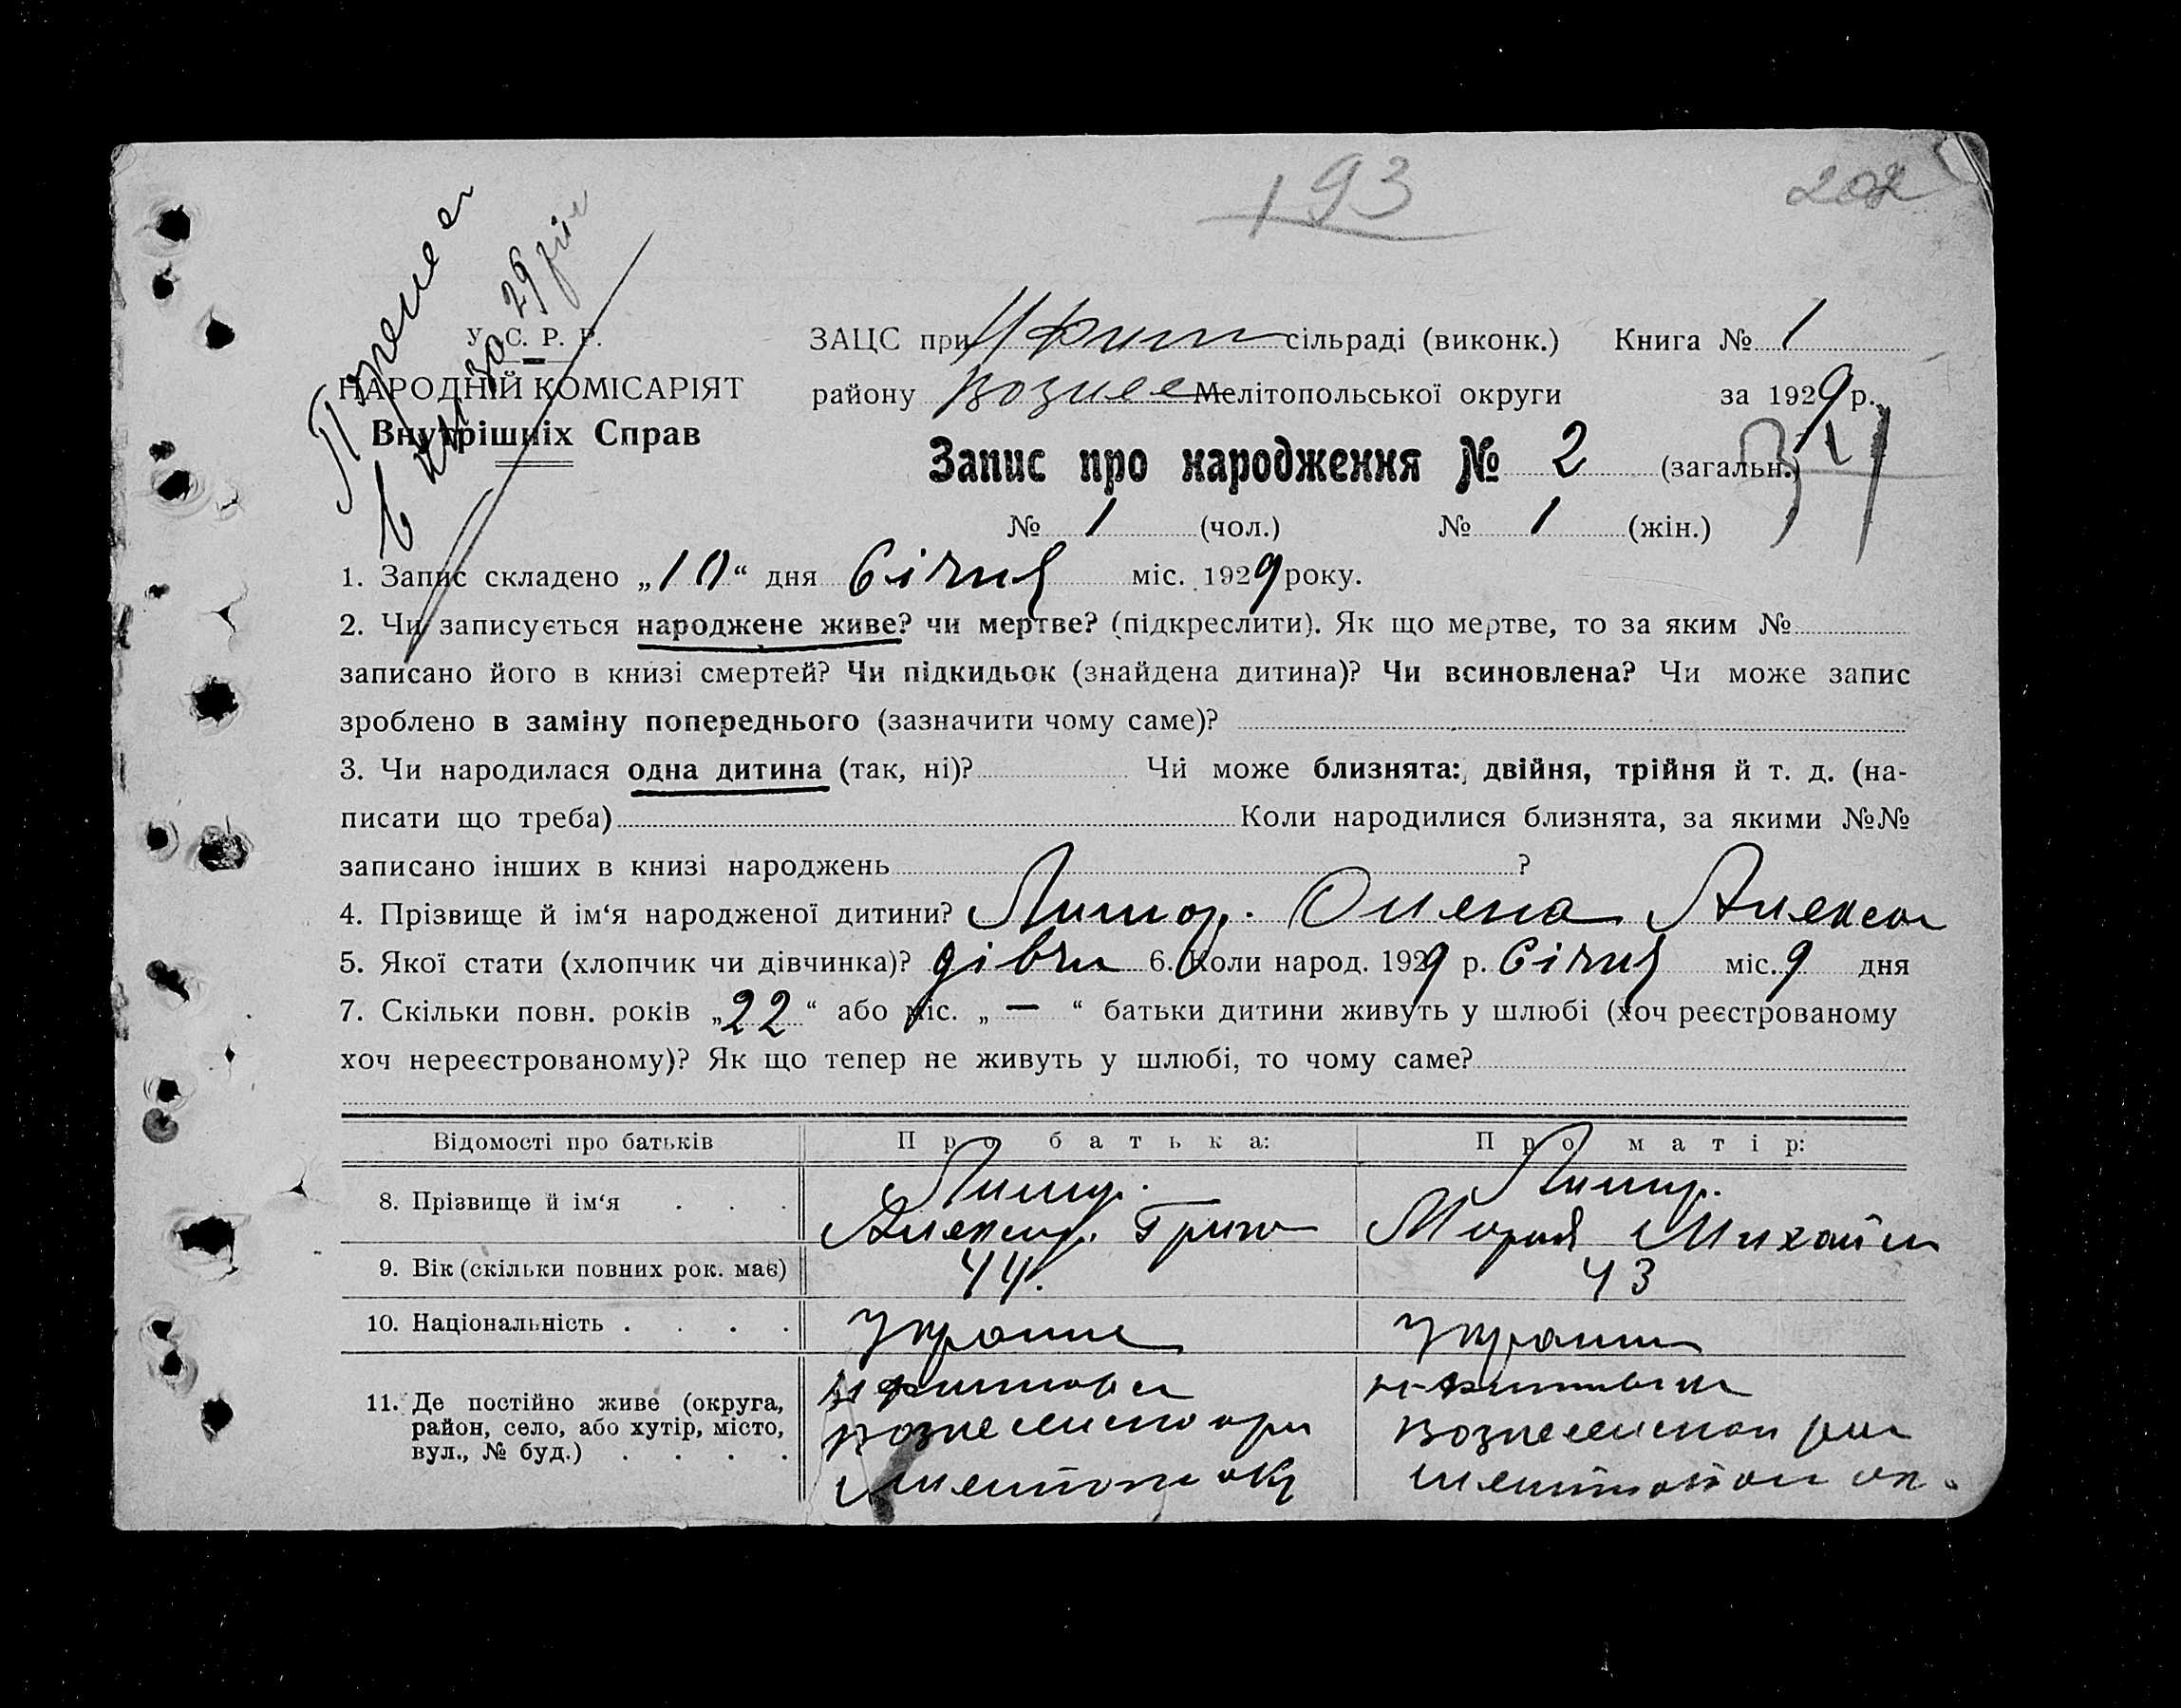 193
202
У. С. Р. Р.
НАРОДНІЙ КОМІСАРІЯТ
Внутрішніх Справ
за 29 рік
ЗАЦС при сільраді (виконк.) Книга № 1
району Вознес Мелітопольської округи за 1929 р.
Запис про народження № 2 (загальн.)
№ 1 (чол.) № 1 (жін.)
1. Запис складено „10“ дня Січня міс. 1929 року.
2. Чи записується народжене живе? чи мертве? (підкреслити). Як що мертве, то за яким №
записано його в книзі смертей? Чи підкидьок (знайдена дитина)? Чи всиновлена? Чи може запис
зроблено в заміну попереднього (зазначити чому саме)?
3. Чи народилася одна дитина (так, ні)? Чи може близнята: двійня, трійня й т. д. (на-
писати що треба) Коли народилися близнята, за якими №№
записано інших в книзі народжень ?
4. Прізвище й ім‘я народженої дитини? Олена Алексан
5. Якої стати (хлопчик чи дівчинка)? дівчи 6. Коли народ. 1929 р. Січня міс. 9 дня
7. Скільки повн. років „22“ або міс. „—“ батьки дитини живуть у шлюбі (хоч реєстрованому
хоч нереєстрованому)? Як що тепер не живуть у шлюбі, то чому саме?
Відомості про батьків Про батька: Про матір:
8. Прізвище й ім‘я . . .
Александ. Григо Мария Михайл
9. Вік (скільки повних рок. має) 44. 43
10. Національність . . . . украине украин
11. Де постійно живе (округа,
район, село, або хутір, місто,
вул., № буд.) . . . .